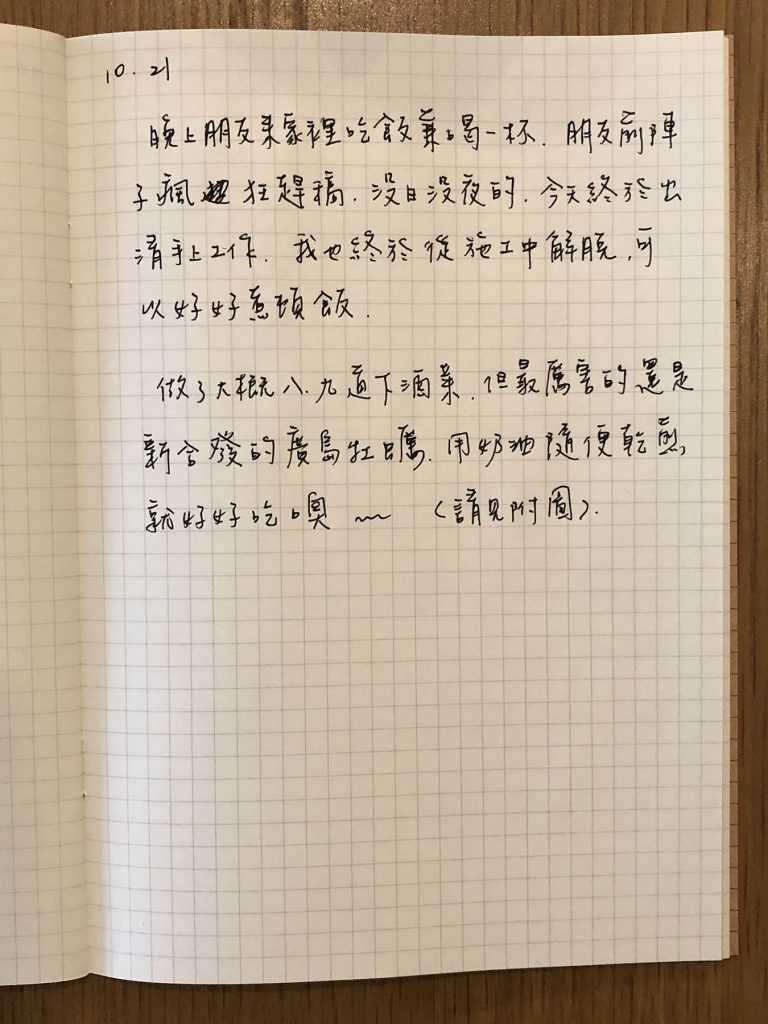 10.21
晚上朋友來家裡吃飯兼喝一杯. 朋友前陣
子瘋狂趕稿. 沒日沒夜的. 今天終於出
清手上工作. 我也終於從施工中解脫,可
以好好煮頓飯.
做了大概八.九道下酒菜. 但最厲害的還是
新合發的廣島牡蠣. 用奶油隨便乾煎
就好好吃噢~~ (請見附圖).